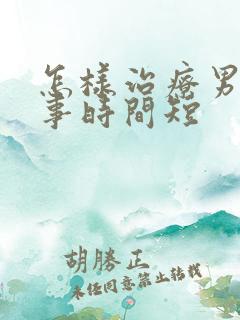 怎樣治療男
事時間短
胡勝正
未任同意禁止轉載